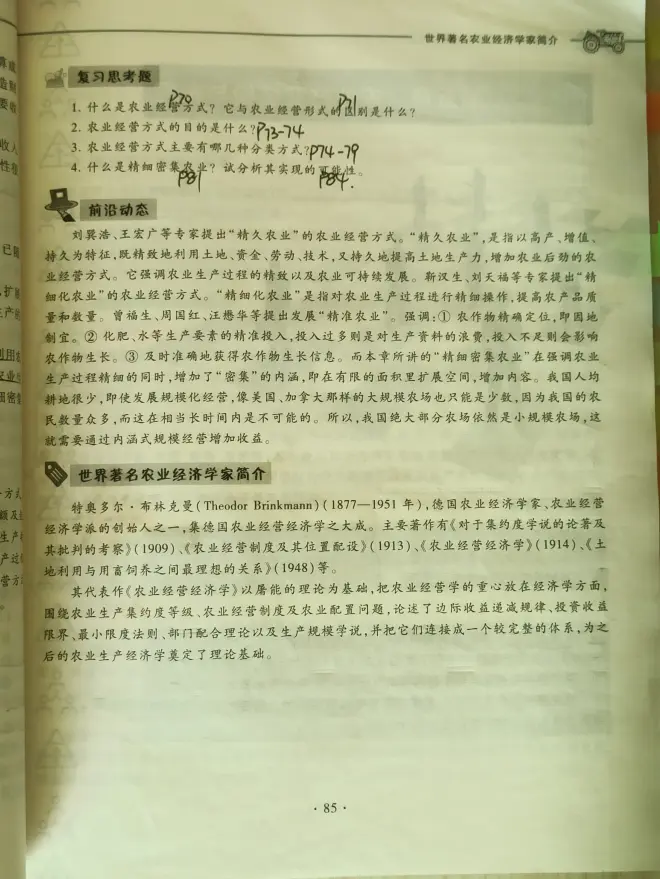 世界著名农业经济学家简介
复习思考题
P70 P71
1. 什么是农业经营方式？它与农业经营形式的区别是什么？
2. 农业经营方式的目的是什么？P73-74
3. 农业经营方式主要有哪几种分类方式？P74-79
4. 什么是精细密集农业？试分析其实现的可能性。
P81 P84.
前沿动态
刘巽浩、王宏广等专家提出“精久农业”的农业经营方式。“精久农业”，是指以高产、增值、
持久为特征，既精致地利用土地、资金、劳动、技术，又持久地提高土地生产力，增加农业后劲的农
业经营方式。它强调农业生产过程的精致以及农业可持续发展。靳汉生、刘天福等专家提出“精
细化农业”的农业经营方式。“精细化农业”是指对农业生产过程进行精细操作，提高农产品质
量和数量。曾福生、周国红、汪懋华等提出发展“精准农业”。强调：① 农作物精确定位，即因地
制宜。② 化肥、水等生产要素的精准投入，投入过多则是对生产资料的浪费，投入不足则会影响
农作物生长。③ 及时准确地获得农作物生长信息。而本章所讲的“精细密集农业”在强调农业
生产过程精细的同时，增加了“密集”的内涵，即在有限的面积里扩展空间，增加内容。我国人均
耕地很少，即使发展规模化经营，像美国、加拿大那样的大规模农场也只能是少数，因为我国的农
民数量众多，而这在相当长时间内是不可能的。所以，我国绝大部分农场依然是小规模农场，这
就需要通过内涵式规模经营增加收益。
世界著名农业经济学家简介
特奥多尔·布林克曼(Theodor Brinkmann)(1877—1951 年)，德国农业经济学家、农业经营
经济学派的创始人之一，集德国农业经营经济学之大成。主要著作有《对于集约度学说的论著及
其批判的考察》(1909)、《农业经营制度及其位置配设》(1913)、《农业经营经济学》(1914)、《土
地利用与用畜饲养之间最理想的关系》(1948)等。
其代表作《农业经营经济学》以屠能的理论为基础，把农业经营学的重心放在经济学方面，
围绕农业生产集约度等级、农业经营制度及农业配置问题，论述了边际收益递减规律、投资收益
限界、最小限度法则、部门配合理论以及生产规模学说，并把它们连接成一个较完整的体系，为之
后的农业生产经济学奠定了理论基础。
· 85 ·